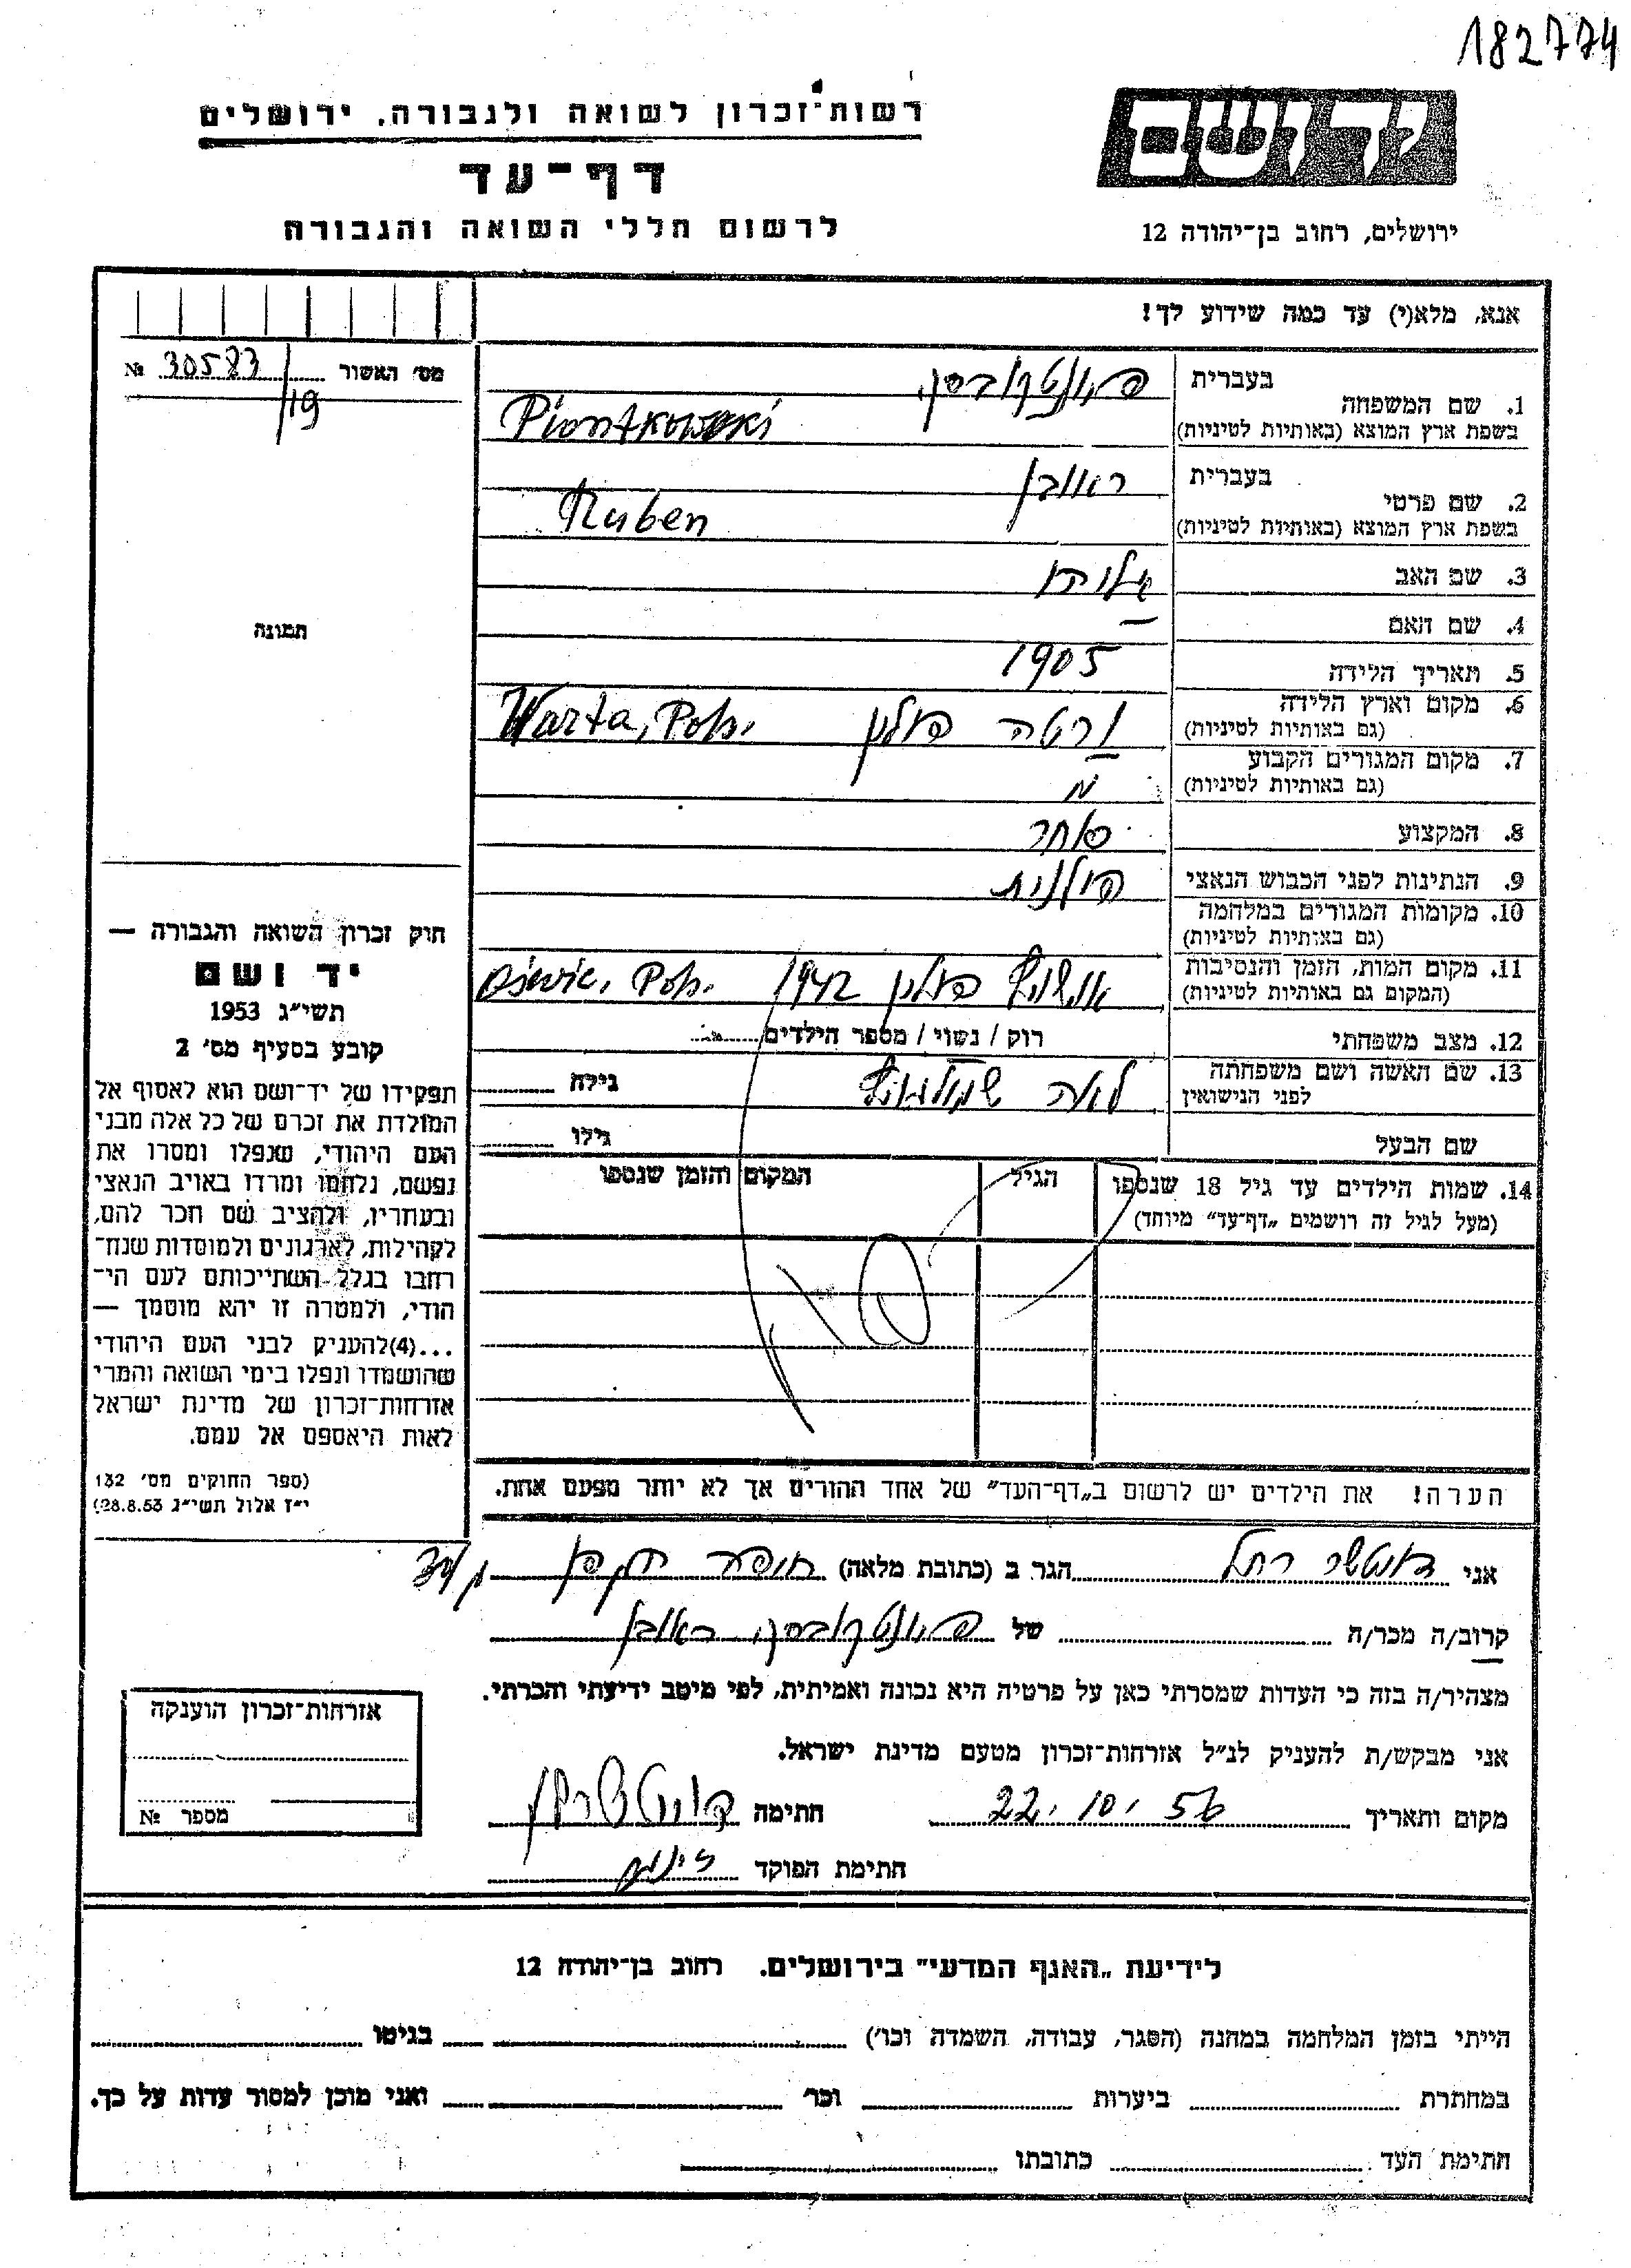 182774
רשות־זכרון לשואה ולגבורה. ירושלים
דף־עד
לרשום חללי השואה והגבורה
יד ושם
ירושלים, רחוב בן־יהודה 12
אנא. מלא(י) עד כמה שידוע לך!
מס׳ האשור № 30583
/19
בעברית פיונטקובסקי
1. שם המשפחה
בשפת ארץ המוצא (באותיות לטיניות) Piontkowski
בעברית ראובן
2. שם פרטי
בשפת ארץ המוצא (באותיות לטיניות) Ruben
3. שם האב
4. שם האם —
5. תאריך הלידה 1905
6. מקום וארץ הלידה ורטה פולין Warta, Pol.
(גם באותיות לטיניות)
7. מקום המגורים הקבוע
(גם באותיות לטיניות)
8. המקצוע סוחר
9. הנתינות לפני הכבוש הנאצי פולנית
10. מקומות המגורים במלחמה
(גם באותיות לטיניות)
11. מקום המות, הזמן והנסיבות 1942 פולין
(המקום גם באותיות לטיניות) Pol.
12. מצב משפחתי רוק / נשוי / מספר הילדים
13. שם האשה ושם משפחתה לאה גילה
לפני הנישואין
שם הבעל גילו
14. שמות הילדים עד גיל 18 שנספו הגיל המקום והזמן שנספו
(מעל לגיל זה רושמים „דף־עד״ מיוחד)
הערה! את הילדים יש לרשום ב„דף־העד״ של אחד ההורים אך לא יותר מפעם אחת.
תמונה
חוק זכרון השואה והגבורה —
יד ושם
תשי״ג 1953
קובע בסעיף מס׳ 2
תפקידו של יד־ושם הוא לאסוף אל
המולדת את זכרם של כל אלה מבני
העם היהודי, שנפלו ומסרו את
נפשם, נלחמו ומרדו באויב הנאצי
ובעוזריו, ולהציב שם וזכר להם,
לקהילות, לארגונים ולמוסדות שנח־
רבו בגלל השתייכותם לעם הי־
הודי, ולמטרה זו יהא מוסמך —
...(4)להעניק לבני העם היהודי
שהושמדו ונפלו בימי השואה והמרי
אזרחות־זכרון של מדינת ישראל
לאות היאספם אל עמם.
(ספר החוקים מס׳ 132
י״ז אלול תשי״ג 28.8.53)
אני רחל הגר ב (כתובת מלאה)
קרוב/ה מכר/ה של פיונטקובסקי ראובן
מצהיר/ה בזה כי העדות שמסרתי כאן על פרטיה היא נכונה ואמיתית, לפי מיטב ידיעתי והכרתי.
אני מבקש/ת להעניק לנ״ל אזרחות־זכרון מטעם מדינת ישראל.
מקום ותאריך 22.10.56 חתימה
חתימת הפוקד
אזרחות־זכרון הוענקה
מספר №
לידיעת „האגף המדעי״ בירושלים. רחוב בן־יהודה 12
הייתי בזמן המלחמה במחנה (הסגר, עבודה, השמדה וכו׳) בגיטו
במחתרת ביערות וכו׳ ואני מוכן למסור עדות על כך.
חתימת העד כתובתו